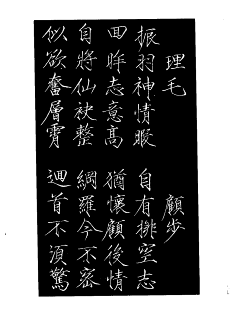 理毛
振羽神情暇
回眸志意高
自將仙袂整
似欲奮層霄
顧步
自有排空志
猶懷顧後情
網羅今不密
迴首不湏驚